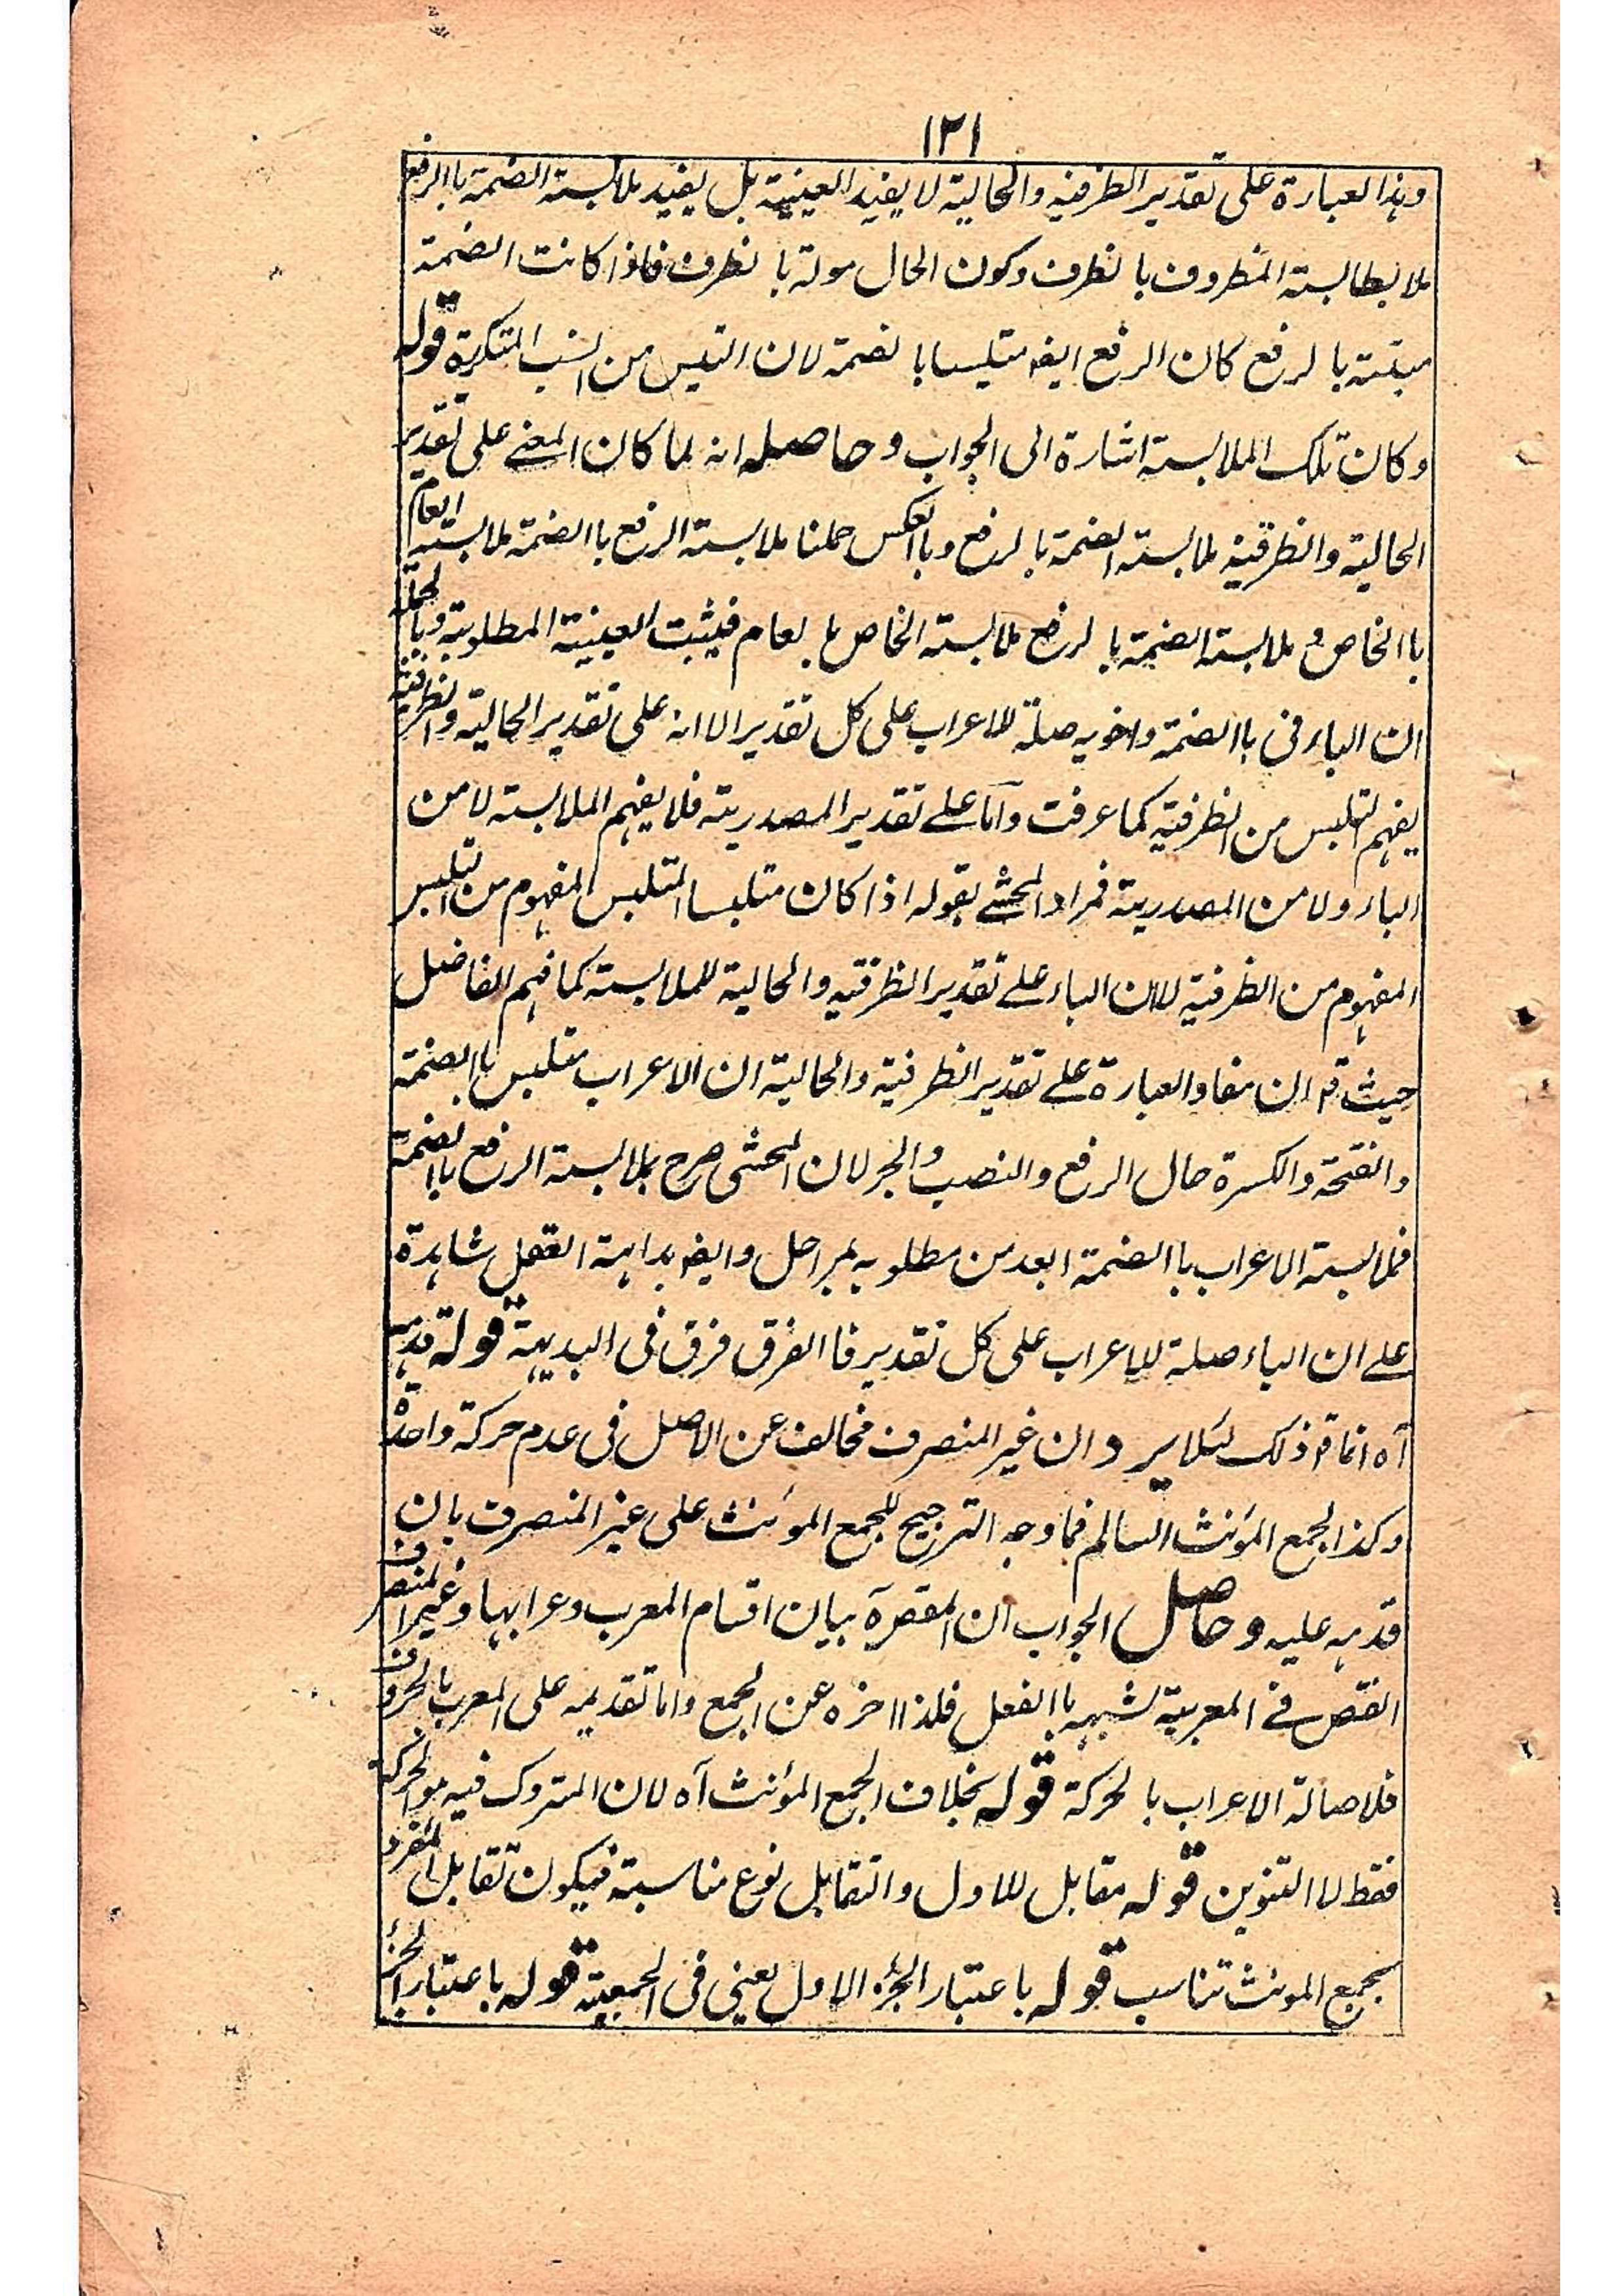 ١٢١
وہذا العبارة على تقدير الظرفية والحالية لا يفيد العينية بل يفيد ملابسة الضمة باالرفع
ملا بطالبسة المظروف بالظرف وكون الحال مولة بالظرف فاذا كانت الضمة
ملتبسة بالرفع كان الرفع ايضا متلبسا بالضمة لان التلبس من النسب المتكررة قوله
وكان تلك الملابسة اشارة الى الجواب وحاصله انه لما كان المعنے على تقدير
الحالية والظرفية ملابسة الضمة بالرفع وباالعكس حملنا ملابسة الرفع باالضمة ملابسة العام
باالخاص وملابسة الضمة بالرفع ملابسة الخاص بالعام فيثبت العينية المطلوبة وبالجملة
ان الباء فى باالضمة واخويه صلة للاعراب على كل تقدير الا انه على تقدير الحالية والظرفية
يفہم التلبس من الظرفية كما عرفت واما علے تقدير المصدرية فلا يفہم الملابسة لا من
الباء ولا من المصدرية فمراد المحشے بقوله اذا كان متلبسا المتلبس المفہوم من التلبس
المفہوم من الظرفية لا ان الباء علے تقدير الظرفية والحالية للملابسة كما فہم الفاضل
حيث قم ان مفاد العبارة علے تقدير الظرفية والحالية ان الاعراب متلبس باالضمة
والفتحة والكسرة حال الرفع والنصب والجر لان المحشى صرح بملابسة الرفع باالضمة
فملابسة الاعراب باالضمة ابعد من مطلوبه بمراحل وايضا بداہة العقل شاہدة
علے ان الباء صلة للاعراب على كل تقدير فاالفرق فرق فى البديہة قوله قدمہ
آه انما قم ذلك لئلا يرد ان غير المنصرف مخالف عن الاصل فى عدم حركة واحدة
وكذا الجمع المؤنث السالم فما وجه الترجيح للجمع المؤنث على غير المنصرف بان
قدمہ عليه وحاصل الجواب ان المقصرة بيان اقسام المعرب وعرابہا وغير المنصرف
انقص فے المعربية لشبہه باالفعل فلذا اخره عن الجمع واما تقديمه على المعرب بالحروف
فلاصالة الاعراب بالحركة قوله بخلاف الجمع المؤنث آه لان المتروك فيه هو الحركة
فقط لا التنوين قوله مقابل للاول والتقابل نوع مناسبة فيكون تقابل المفرد
بجمع المونث تناسب قوله باعتبار الجزء الاول يعنى فى الجمعية قوله باعتبار الجزء